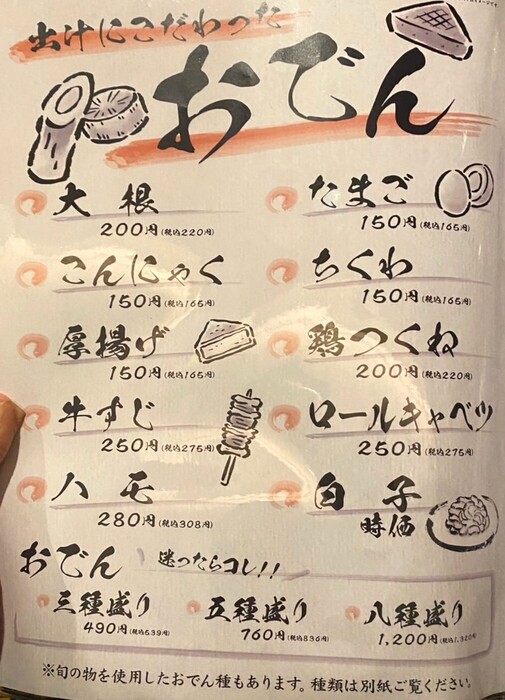 出汁にこだわった
おでん
大根
200円(税込220円)
たまご
150円(税込165円)
こんにゃく
150円(税込165円)
ちくわ
150円(税込165円)
厚揚げ
150円(税込165円)
鶏つくね
200円(税込220円)
牛すじ
250円(税込275円)
ロールキャベツ
250円(税込275円)
ハモ
280円(税込308円)
白子
時価
おでん 迷ったらコレ!!
三種盛り
490円(税込539円)
五種盛り
760円(税込836円)
八種盛り
1,200円(税込1,320円)
※旬の物を使用したおでん種もあります。種類は別紙ご覧ください。